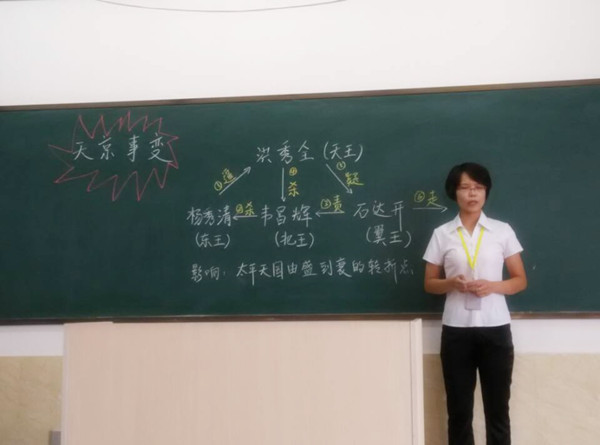 天京事变
洪秀全(天王)
①逼 ④杀 ⑤疑
杨秀清 ②杀 韦昌辉 ③责 石达开 ⑥走
(东王) (北王) (翼王)
影响：太平天国由盛到衰的转折点。